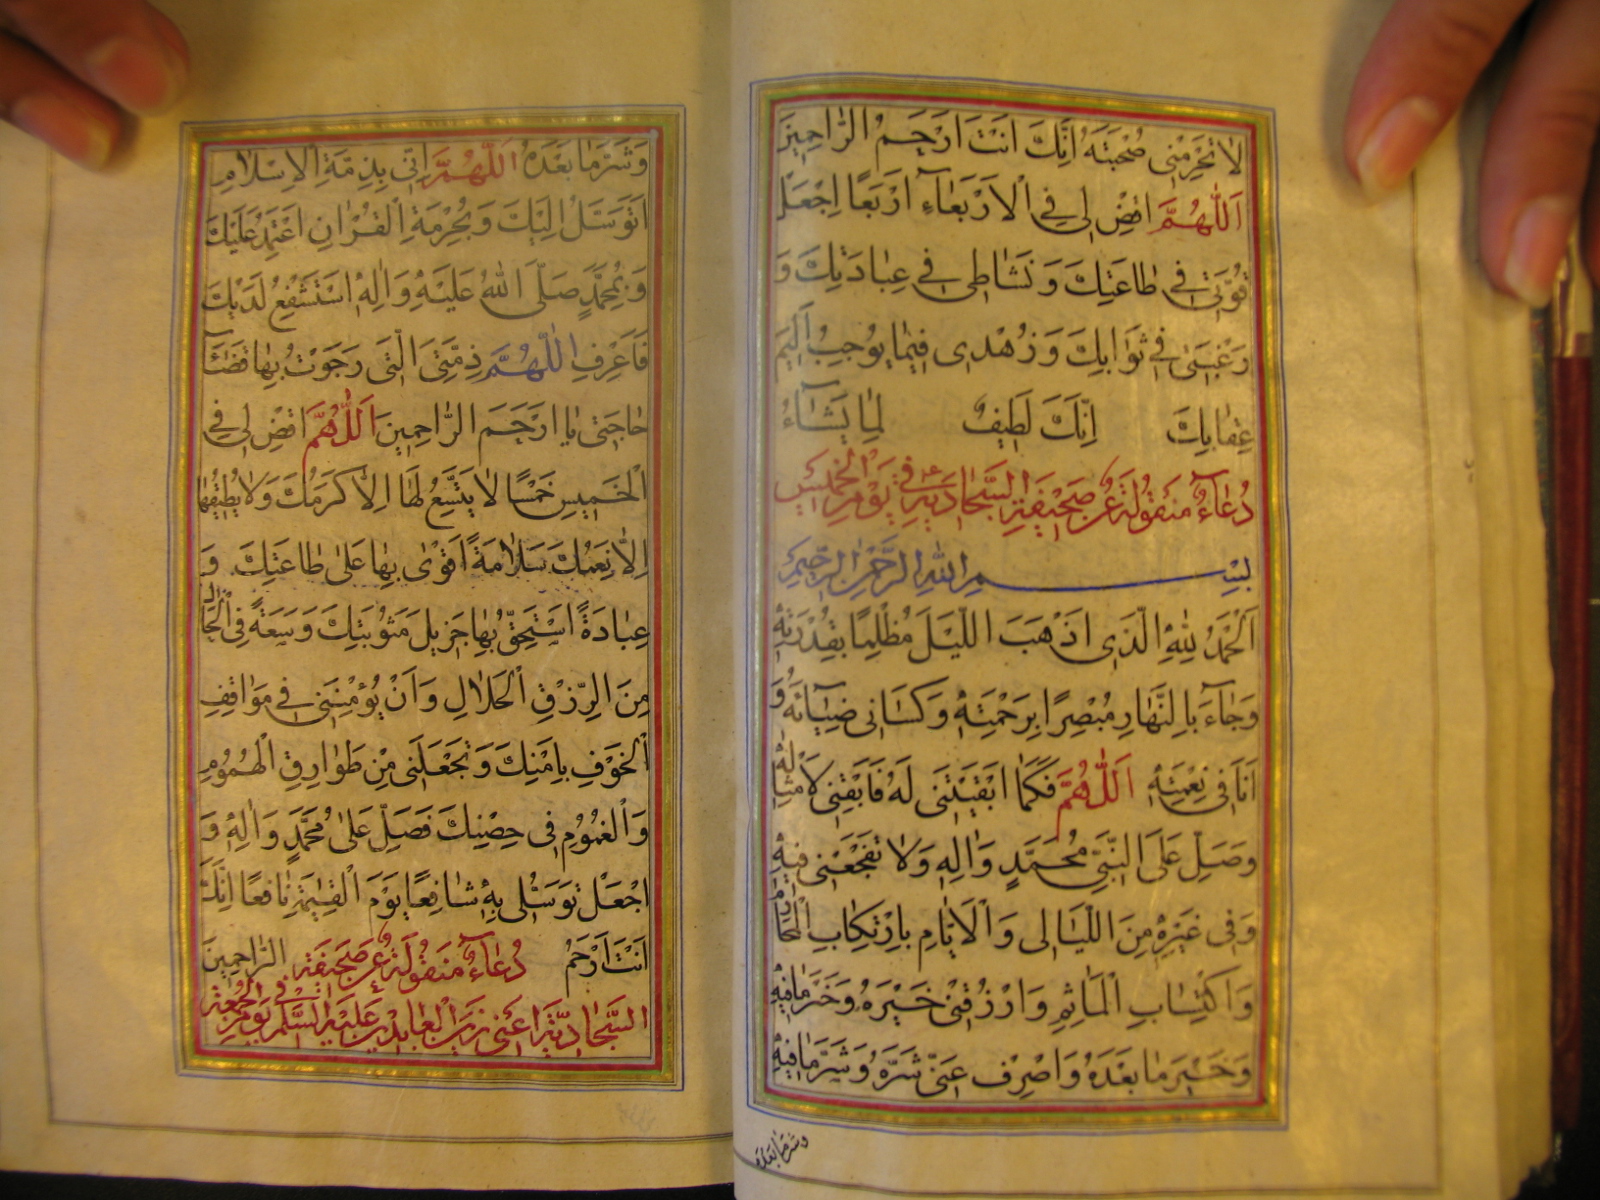 لَا تَحْرِمْنِي صُحْبَتَهُ إِنَّكَ أَنْتَ أَرْحَمُ الرَّاحِمِينَ
اَللّٰهُمَّ اقْضِ لِي فِي الْأَرْبَعَاءِ أَرْبَعًا اِجْعَلْ
قُوَّتِي فِي طَاعَتِكَ وَنَشَاطِي فِي عِبَادَتِكَ وَ
رَغْبَتِي فِي ثَوَابِكَ وَزُهْدِي فِيمَا يُوجِبُ أَلِيمَ
عِقَابِكَ إِنَّكَ لَطِيفٌ لِمَا يَشَاءُ
دُعَاءٌ مَنْقُولَةٌ عَنْ صَحِيفَةِ السَّجَّادِيَّةِ فِي يَوْمِ الْخَمِيسِ
بِسْمِ اللهِ الرَّحْمٰنِ الرَّحِيمِ
اَلْحَمْدُ لِلّٰهِ الَّذِي اَذْهَبَ اللَّيْلَ مُظْلِمًا بِقُدْرَتِهِ
وَجَاءَ بِالنَّهَارِ مُبْصِرًا بِرَحْمَتِهِ وَكَسَانِي ضِيَائَهُ وَ
اَنَا فِي نِعْمَتِهِ اَللّٰهُمَّ فَكَمَا اَبْقَيْتَنِي لَهُ فَاَبْقِنِي لِاَمْثَالِهِ
وَصَلِّ عَلَى النَّبِيِّ مُحَمَّدٍ وَاٰلِهِ وَلَا تَفْجَعْنِي فِيهِ
وَفِي غَيْرِهِ مِنَ اللَّيَالِي وَالْاَيَّامِ بِارْتِكَابِ الْمَحَارِمِ
وَاكْتِسَابِ الْمَاٰثِمِ وَارْزُقْنِي خَيْرَهُ وَخَيْرَ مَا فِيهِ
وَخَيْرَ مَا بَعْدَهُ وَاصْرِفْ عَنِّي شَرَّهُ وَشَرَّ مَا فِيهِ
وَشَرَّ مَا بَعْدَهُ
وَشَرَّ مَا بَعْدَهُ اَللّٰهُمَّ اِنِّي بِذِمَّةِ الْاِسْلَامِ
اَتَوَسَّلُ اِلَيْكَ وَبِحُرْمَةِ الْقُرْاٰنِ اَعْتَمِدُ عَلَيْكَ
وَبِمُحَمَّدٍ صَلَّى اللهُ عَلَيْهِ وَاٰلِهِ اَسْتَشْفِعُ لَدَيْكَ
فَاعْرِفِ اللّٰهُمَّ ذِمَّتِيَ الَّتِي رَجَوْتُ بِهَا قَضَاءَ
حَاجَتِي يَا اَرْحَمَ الرَّاحِمِينَ اَللّٰهُمَّ اقْضِ لِي فِي
الْخَمِيسِ خَمْسًا لَا يَتَّسِعُ لَهَا اِلَّا كَرَمُكَ وَلَا يُطِيقُهَا
اِلَّا نِعَمُكَ سَلَامَةً اَقْوٰى بِهَا عَلَى طَاعَتِكَ وَ
عِبَادَةً اَسْتَحِقُّ بِهَا جَزِيلَ مَثُوبَتِكَ وَسَعَةً فِي الْحَالِ
مِنَ الرِّزْقِ الْحَلَالِ وَاَنْ يُؤْمِنَنِي فِي مَوَاقِفِ
الْخَوْفِ بِاَمْنِكَ وَتَجْعَلَنِي مِنْ طَوَارِقِ الْهُمُومِ
وَالْغُمُومِ فِي حِصْنِكَ فَصَلِّ عَلَى مُحَمَّدٍ وَاٰلِهِ وَ
اجْعَلْ تَوَسُّلِي بِهِ شَافِعًا يَوْمَ الْقِيٰمَةِ نَافِعًا اِنَّكَ
اَنْتَ اَرْحَمُ الرَّاحِمِينَ دُعَاءٌ مَنْقُولَةٌ عَنْ صَحِيفَةِ
السَّجَّادِيَّةِ اَعْنِي زَيْنَ الْعَابِدِينَ عَلَيْهِ السَّلَمُ فِي يَوْمِ الْجُمُعَةِ